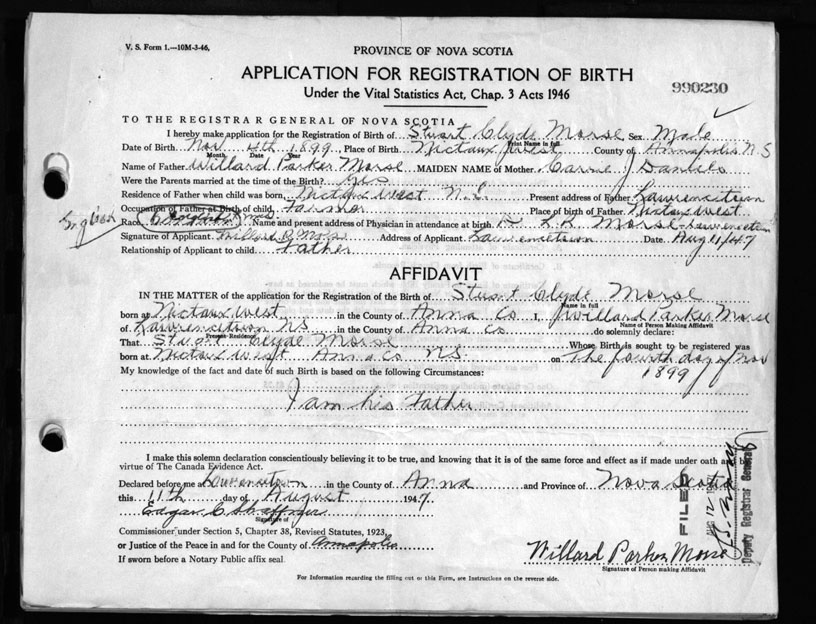 V. S. Form 1.—10M-3-46.
PROVINCE OF NOVA SCOTIA
APPLICATION FOR REGISTRATION OF BIRTH
990230
Under the Vital Statistics Act, Chap. 3 Acts 1946
TO THE REGISTRAR GENERAL OF NOVA SCOTIA
I hereby make application for the Registration of Birth of Stuart Clyde Morse Sex Male
Print Name in full
Date of Birth Nov 4th 1899 Place of Birth Nictaux West County of Annapolis N S
Month Date Year
Name of Father Willard Parker Morse MAIDEN NAME of Mother Carrie J Daniels
Were the Parents married at the time of the Birth? Yes
Residence of Father when child was born, Nictaux West N.S. Present address of Father Lawrencetown
Occupation of Father at Birth of child Farmer Place of birth of Father Nictaux West
English Race Name and present address of Physician in attendance at birth Morse Lawrencetown
Signature of Applicant Willard P Morse Address of Applicant Lawrencetown Date Aug 11/47
Relationship of Applicant to child Father
AFFIDAVIT
IN THE MATTER of the application for the Registration of the Birth of Stuart Clyde Morse
Name in full
born at Nictaux West in the County of Anna Co I, Willard Parker Morse
Name of Person Making Affidavit
of Lawrencetown NS in the County of Anna Co do solemnly declare:
Present Residence
That Stuart Clyde Morse Whose Birth is sought to be registered was
born at Nictaux West Anna Co NS on The fourth day of Nov
1899
My knowledge of the fact and date of such Birth is based on the following Circumstances:
I am his Father
I make this solemn declaration conscientiously believing it to be true, and knowing that it is of the same force and effect as if made under oath and by
virtue of The Canada Evidence Act.
Declared before me at Lawrencetown in the County of Anna and Province of Nova Scotia
this 11th day of August 1947
Edgar C Shaffner
Signature of
Commissioner under Section 5, Chapter 38, Revised Statutes, 1923,
or Justice of the Peace in and for the County of Annapolis
If sworn before a Notary Public affix seal.
Willard Parker Morse
Signature of Person making Affidavit
FILED
Deputy Registrar General
For Information regarding the filling out of this Form, see Instructions on the reverse side.